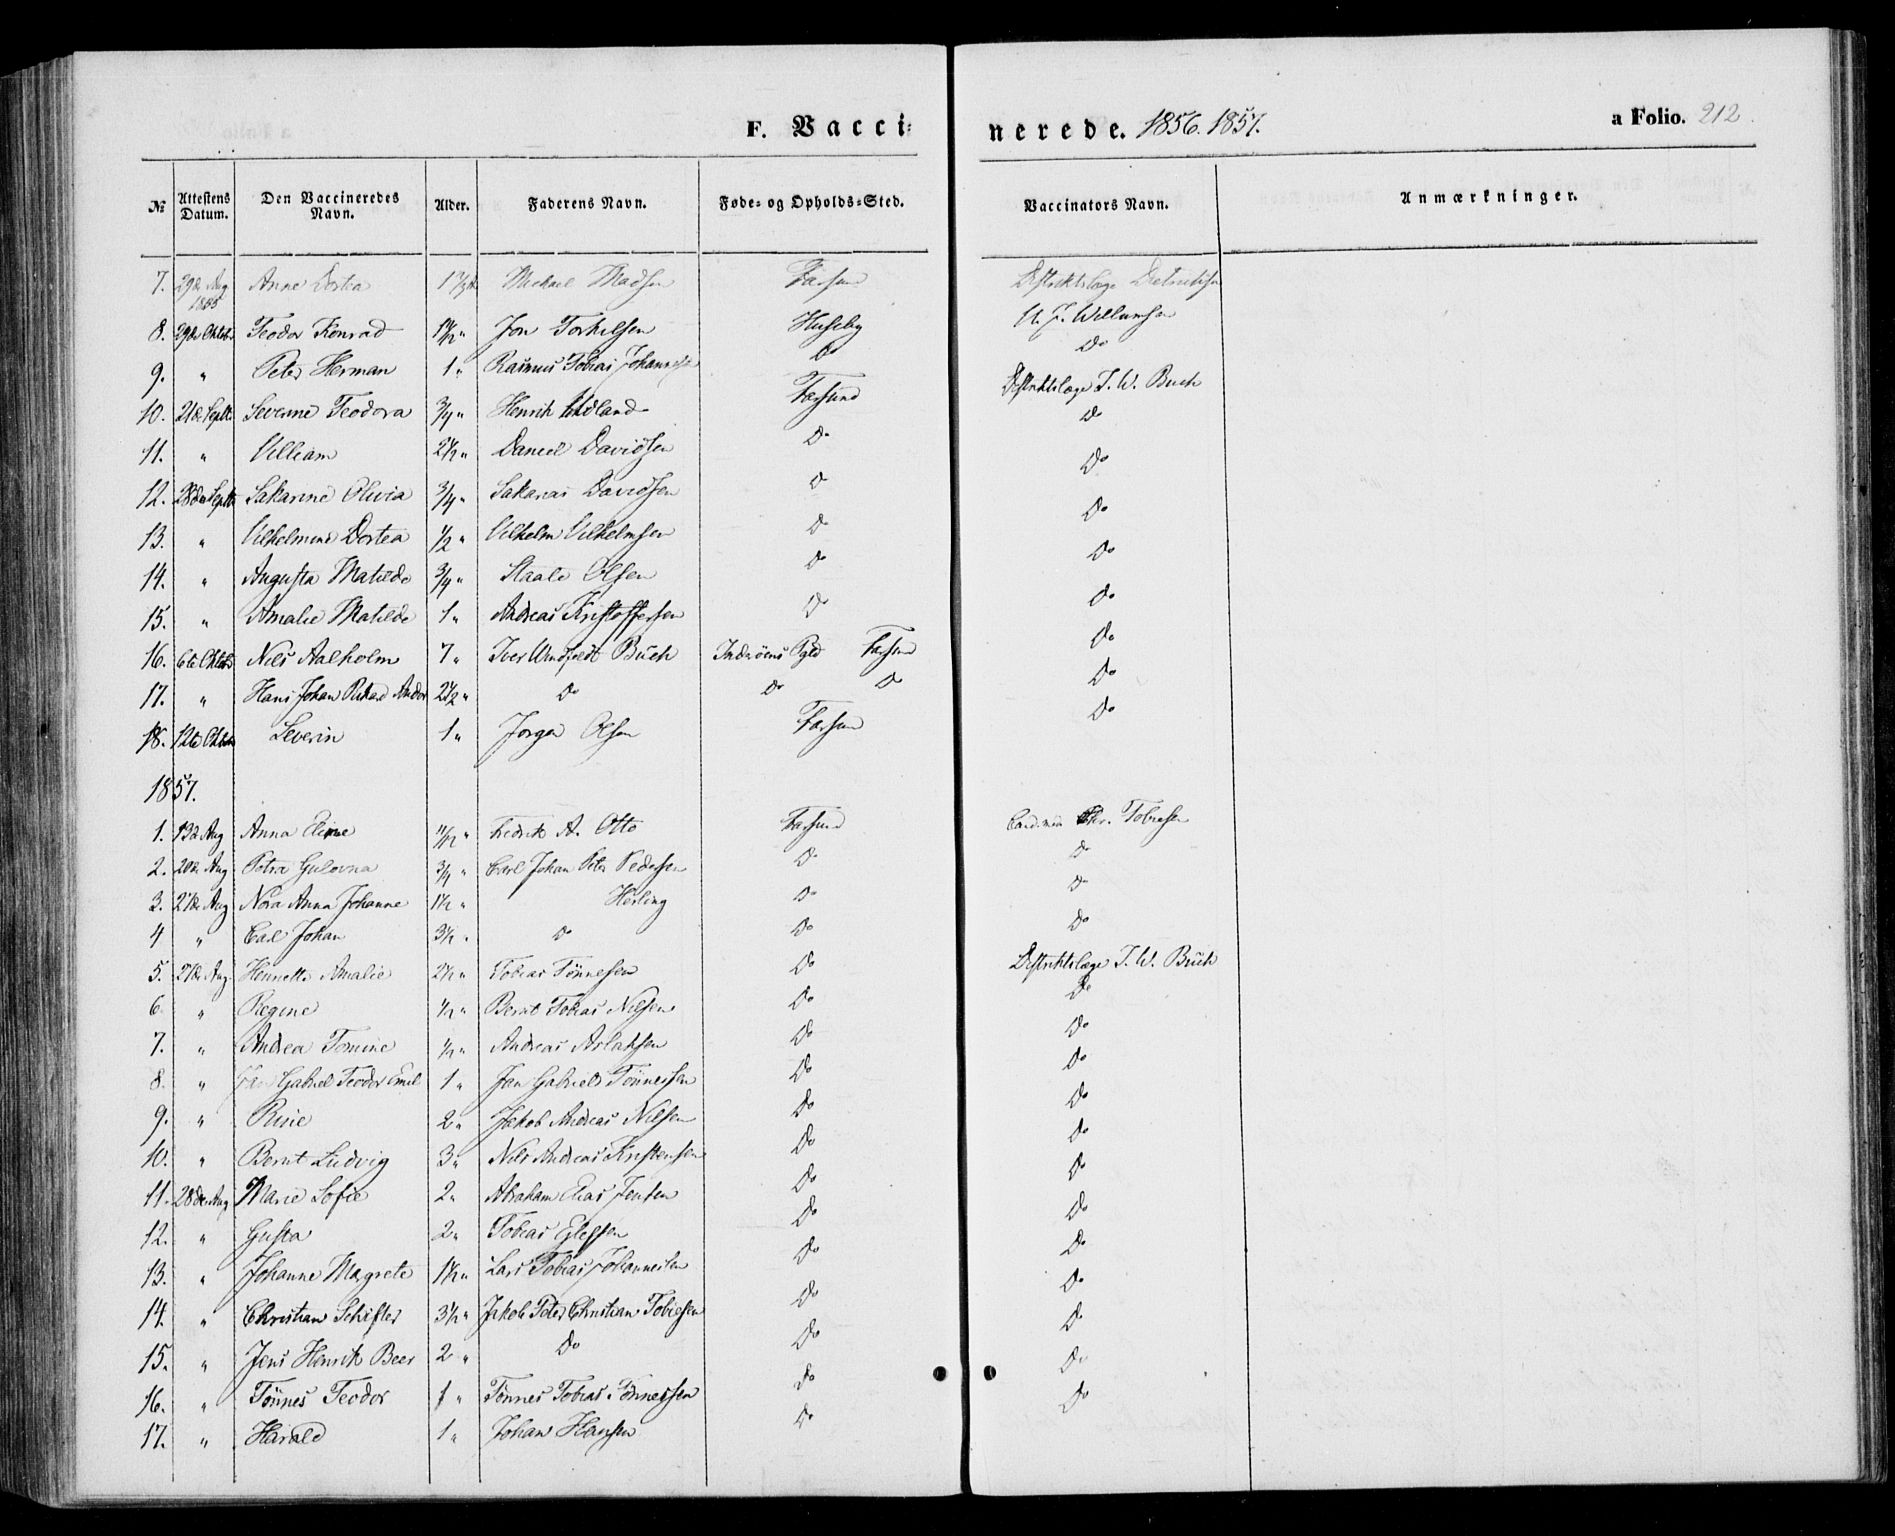 F. Vacci=
nerede. 1856. 1857.
a Folio. 212.
№ Attestens Datum. Den Vaccineredes Navn. Alder. Faderens Navn. Føde- og Opholds-Sted. Vaccinators Navn. Anmærkninger.
7. 29de Aug 1855 Anne Dortea 1 Michael Madsen Farsund Distriktslæge
8. 29de Oktobr Teodor Konrad Jon Torkilsen Huseby U. J. Willumsen
9. " Peter Herman 1 " Rasmus Tobias Johannesen Do Do
10. 21de Septbr Severine Teodora 3/4 " Henrik Farsund Distriktslæge I. W. Buch
11. " Villiam 2 1/2 " Daniel Davidsen Do Do
12. 28de Septbr Sakarine Olivia 3/4 " Sakarias Davidsen Do Do
13. " Vilhelmine Dortea 1/2 " Vilhelm Vilhelmsen Do Do
14. " Augusta Matilde 3/4 " Staale Olsen Do Do
15. " Amalie Matilde 1 " Andreas Kristoffersen Do Do
16. 6te Oktobr Nils Aalholm 7 " Iver Windfeldt Buch Inderøens Pgld Farsund Do
17. " Hans Johan Rikard Andor 2 1/2 " Do Do Do Do
18. 12te Oktobr Severin 1 " Jørgen Olsen Farsund Do
1857.
1. 13de Aug Anna Eline 11/12 " Fredrik A. Otto Farsund Cand. med. Chr. Tobiesen
2. 20de Aug Petra Gulovna 3/4 " Carl Johan Peter Pedersen Do Do
3. 27de Aug Nora Anna Johanne 1 1/2 " Herling Do Do
4 " Carl Johan 3 1/2 " Do Do Do
5. 27de Aug Henrette Amalie 2 1/2 " Tobias Tønnesen Do Distriktslæge I. W. Buch
6. " Regine 1/2 " Bernt Tobias Nilsen Do Do
7. " Andrea Tomine 1/2 " Andreas Aslaksen Do Do
8. " Gabriel Teodor Emil 1 " Jan Gabriel Tønnessen Do Do
9. " Rine 2 " Jakob Andreas Nilsen Do Do
10. " Bernt Ludvig 3 " Nils Andreas Kristensen Do Do
11. 28de Aug Marie Sofie 2 " Abraham Elias Jensen Do Do
12. " Gusta 2 " Tobias Do Do
13. " Johanne Magrete 1 1/2 " Lars Tobias Johannesen Do Do
14. " Christian Schifter 3 1/2 " Jakob Peter Christian Tobiesen Do Do
15. " Jens Henrik Beer 2 " Do Do Do
16. " Tønnes Teodor 1 " Tønnes Tobias Tønnessen Do Do
17. " Harald 1 " Johan Hansen Do Do